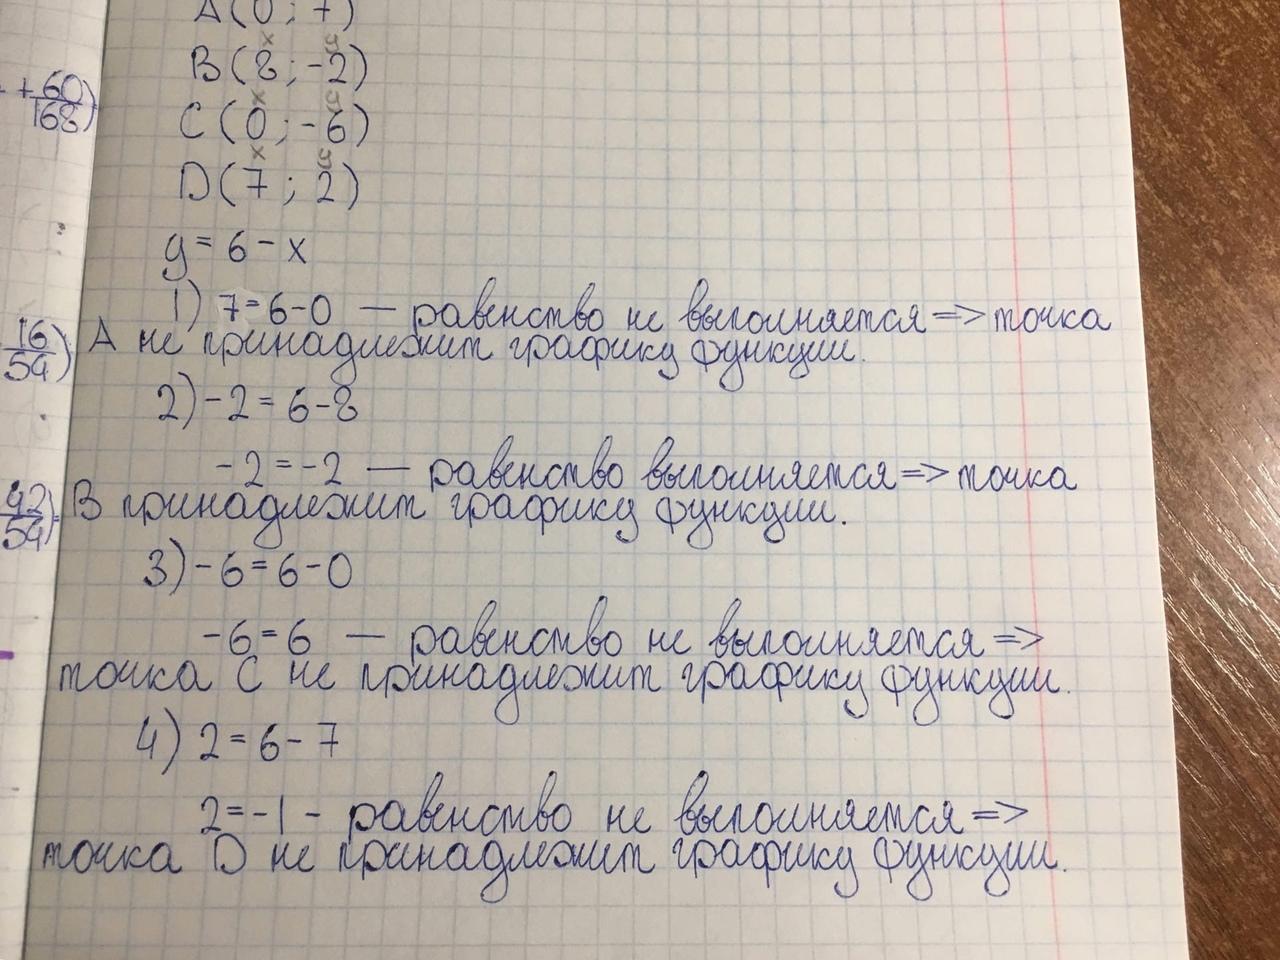 A(0;7)
x y
B(8;-2)
x y
C(0;-6)
x y
D(7;2)
y=6-x
1) 7=6-0 — равенство не выполняется => точка
А не принадлежит графику функции.
2) -2=6-8
-2=-2 — равенство выполняется => точка
В принадлежит графику функции.
3) -6=6-0
-6=6 — равенство не выполняется =>
точка С не принадлежит графику функции.
4) 2=6-7
2=-1 - равенство не выполняется =>
точка D не принадлежит графику функции.
+60
168)
16
54)
42
54)